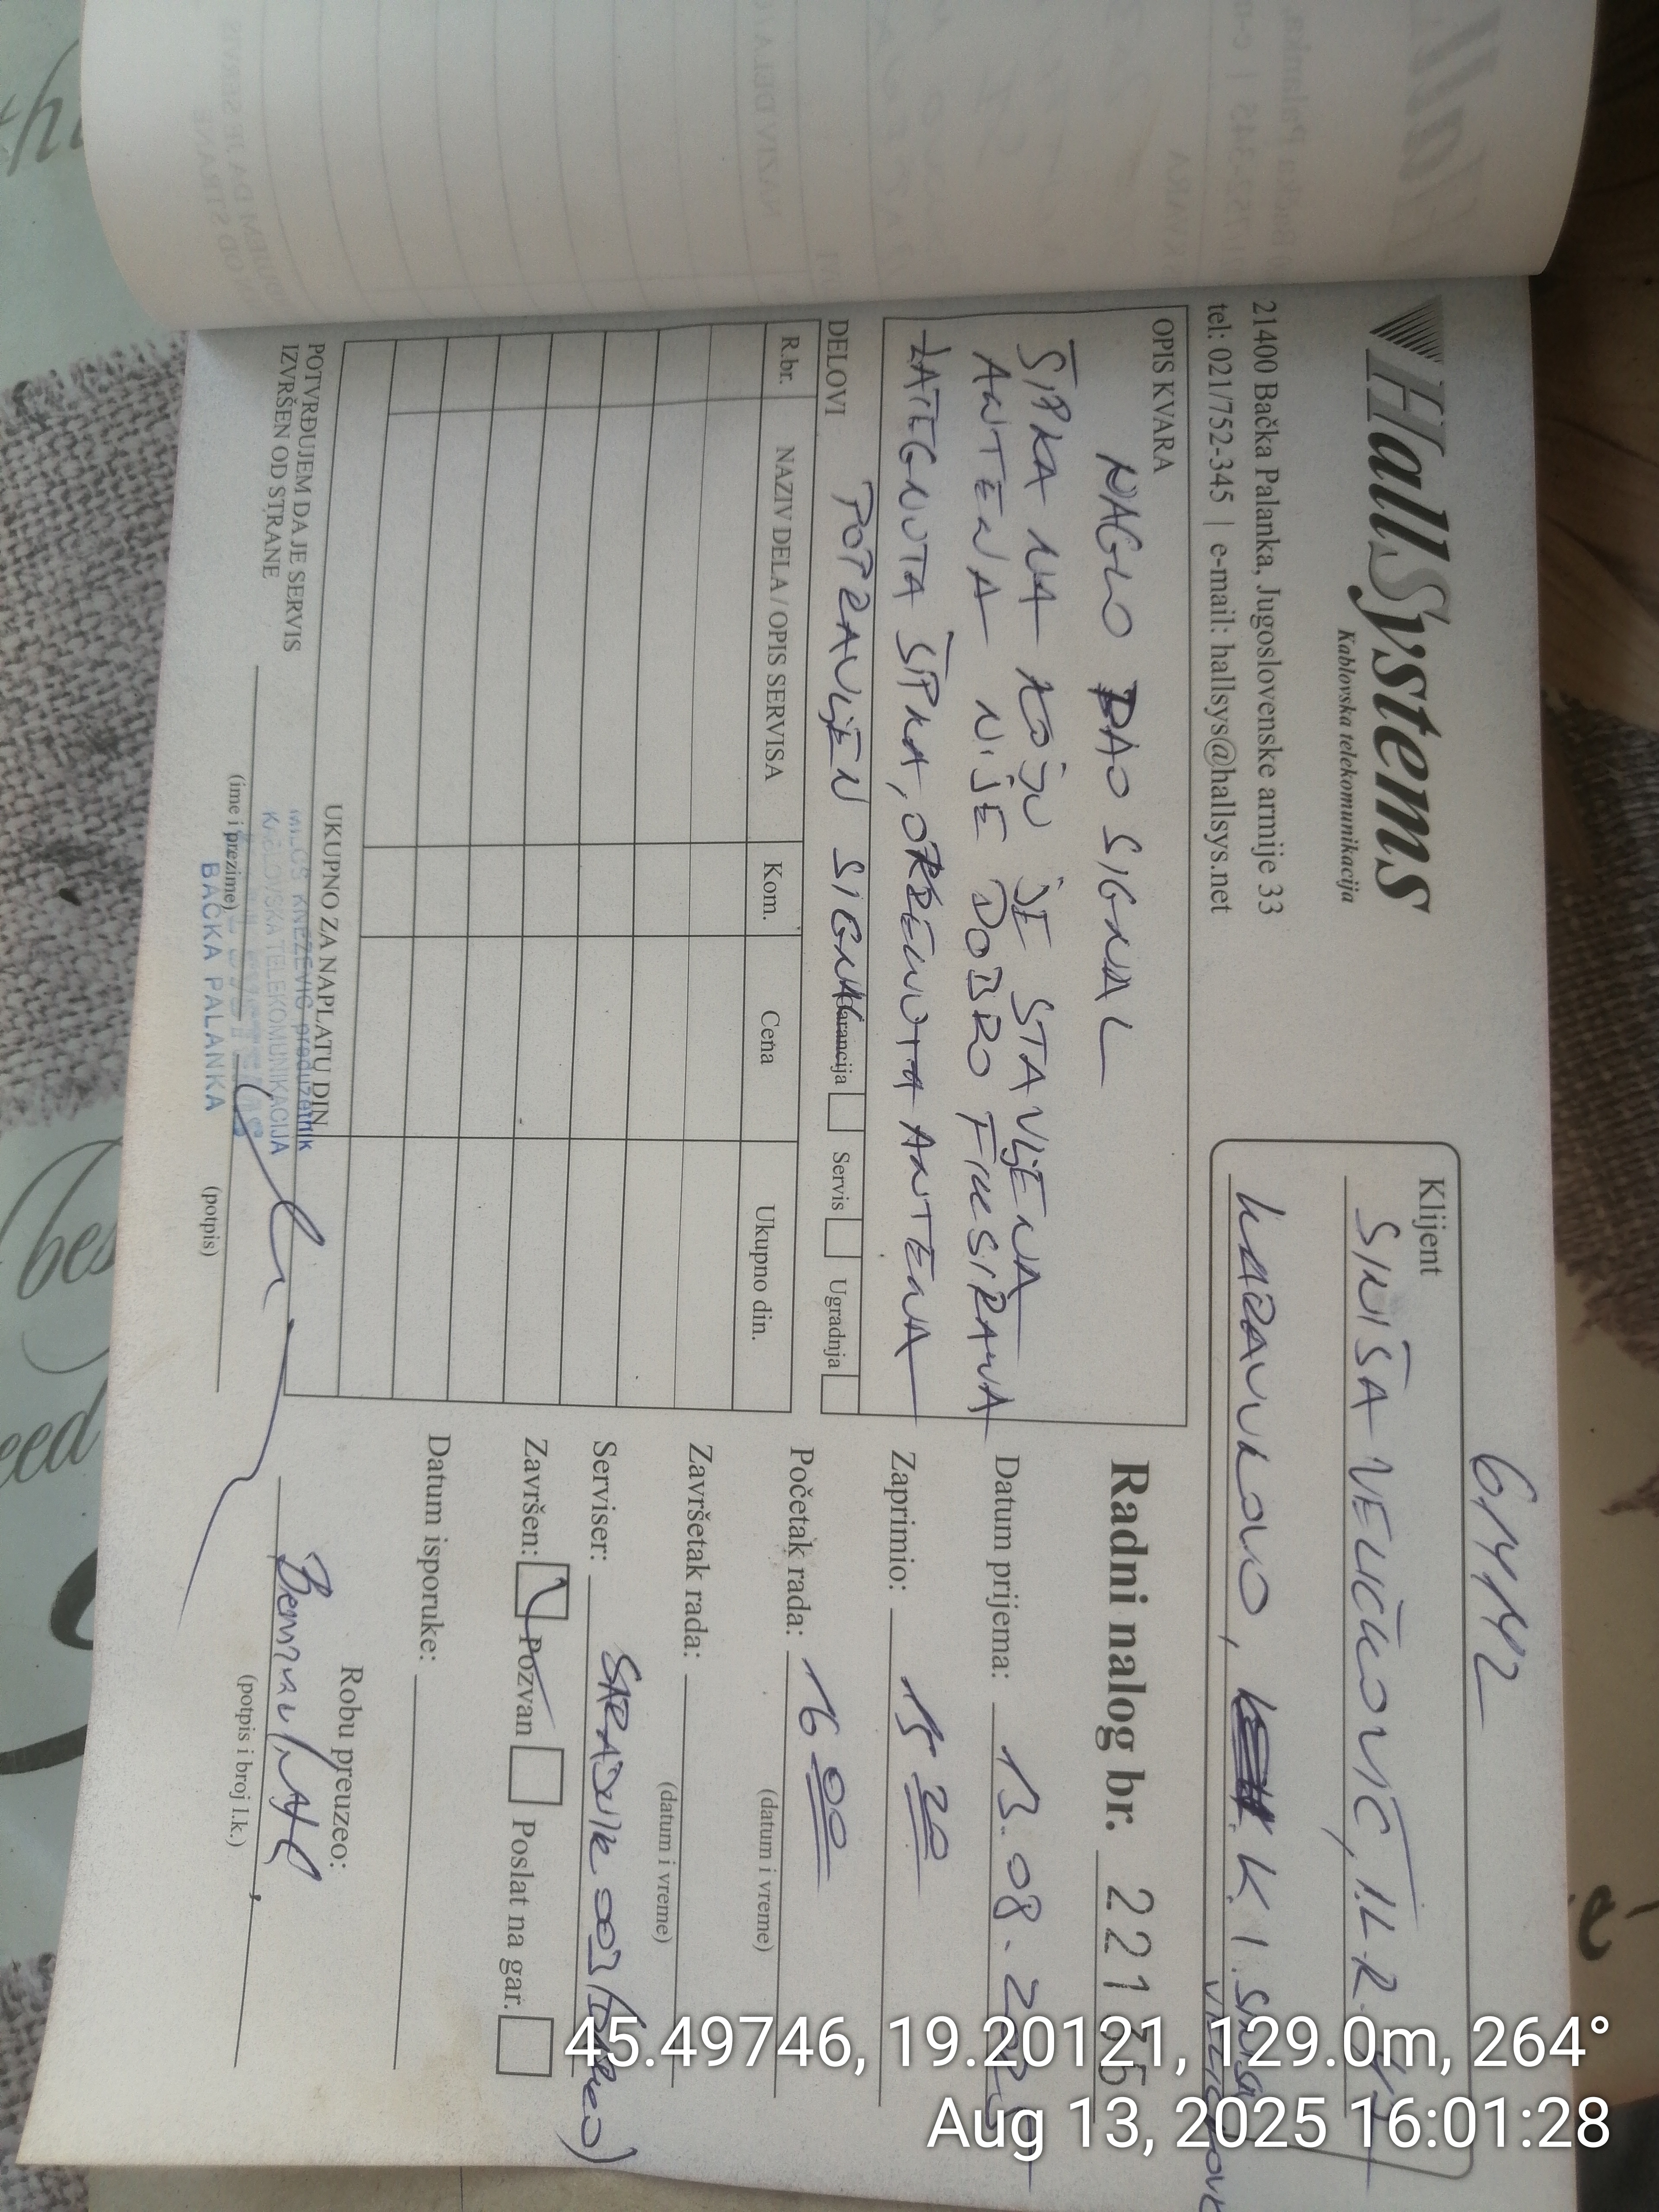 61442
HallSystems
Kablovska telekomunikacija
21400 Bačka Palanka, Jugoslovenske armije 33
tel: 021/752-345 | e-mail: hallsys@hallsys.net
Klijent
SINIŠA VELIČKOVIĆ, I.L.R.
KARAVUKOVO, K1 SINIŠA
OPIS KVARA
NAGLO PAO SIGNAL
ŠIPKA NA KOJU JE STAVLJENA
ANTENA NIJE DOBRO FIKSIRANA
ZATEGNUTA ŠIPKA, OKRENUTA ANTENA
POPRAVLJEN SIGNAL
DELOVI
Garancija Servis Ugradnja
R.br. NAZIV DELA / OPIS SERVISA Kom. Cena Ukupno din.
UKUPNO ZA NAPLATU DIN.
POTVRĐUJEM DA JE SERVIS
IZVRŠEN OD STRANE
(ime i prezime) (potpis)
MILOŠ KNEŽEVIĆ preduzetnik
KABLOVSKA TELEKOMUNIKACIJA
BAČKA PALANKA
Radni nalog br.
Datum prijema: 13.08.
Zaprimio: 15 20
Početak rada: 16 00
(datum i vreme)
Završetak rada:
(datum i vreme)
Serviser:
Završen: Pozvan Poslat na gar.
Datum isporuke:
Robu preuzeo:
(potpis i broj l.k.)
45.49746, 19.20121, 129.0m, 264°
Aug 13, 2025 16:01:28